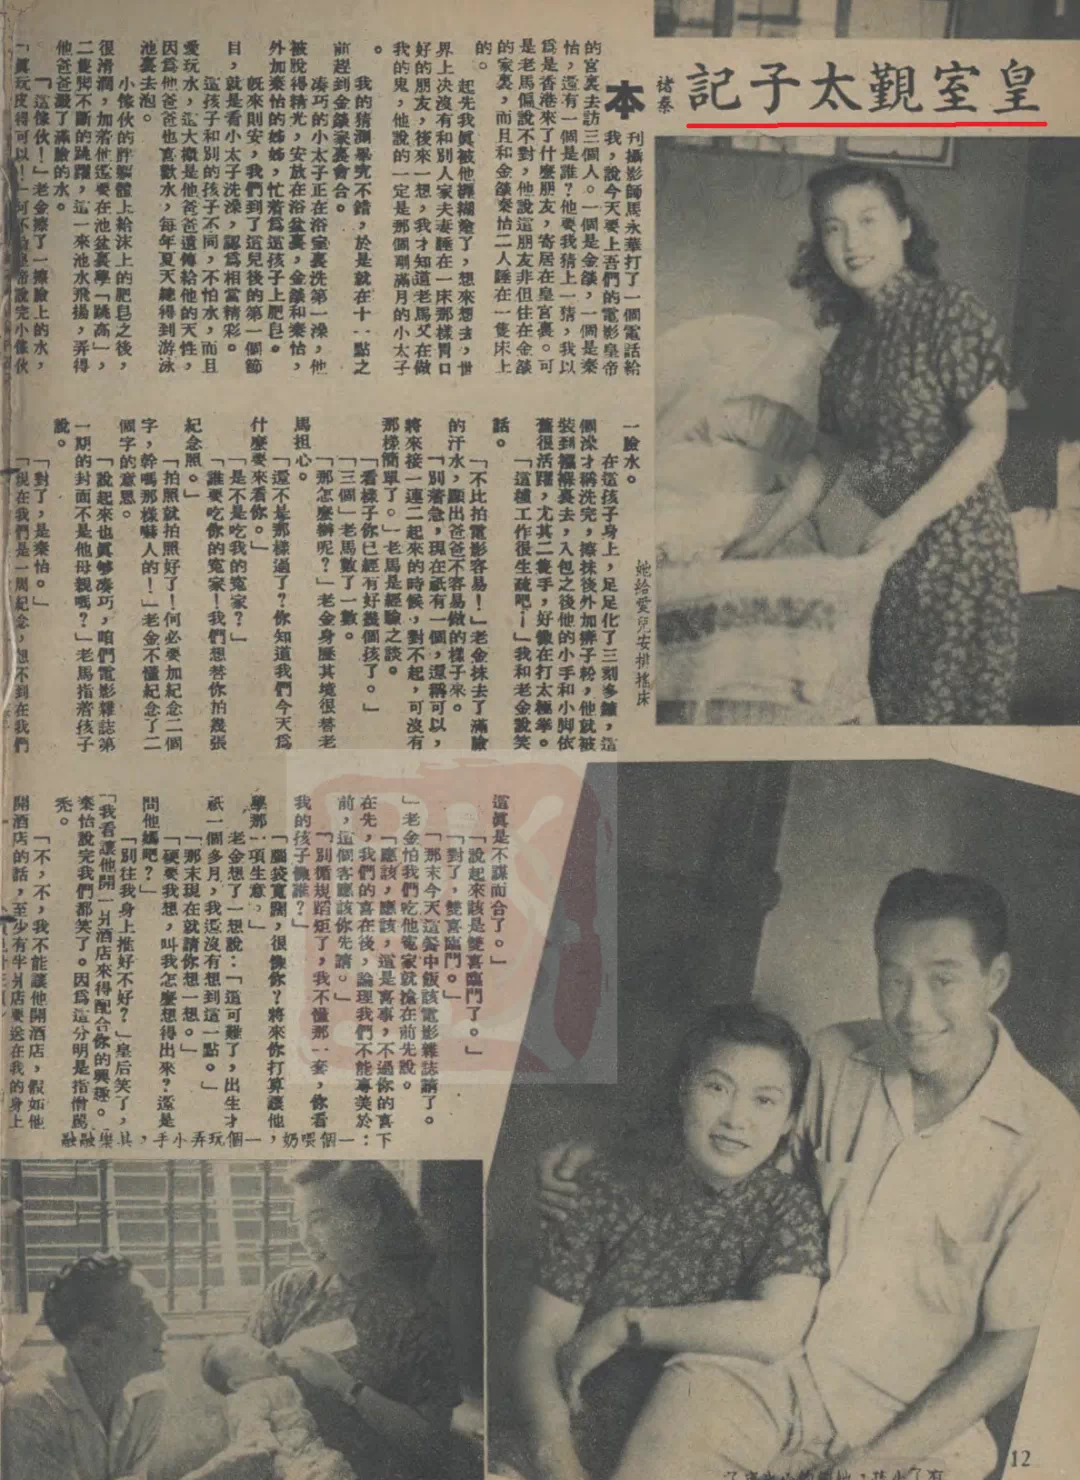 皇室覲太子記
褚秦
本刊攝影師馬永華打了一個電話給
我,說今天要上吾們的電影皇帝
的宮裏去訪三個人。一個是金燄,一個是秦
怡,還有一個是誰?他要我猜上一猜,我以
爲是香港來了什麼朋友,寄居在皇宮裏。可
是老馬偏說不對,他說這朋友非但住在金燄
的家裏,而且和金燄秦怡二人睡在一隻床上
的。
起先我眞被他糊塗了,想來想去,世
界上决沒有和別人家夫妻睡在一床那樣胃口
好的朋友,後來一想,我才知道老馬又在做
我的鬼,他說的一定是那個剛滿月的小太子
。
我的猜測畢究不錯,於是就在十一點之
前趕到金燄家裏會合。
湊巧的小太子正在浴室裏洗第一澡,他
被脫得精光,安放在浴盆裏,金燄和秦怡,
外加秦怡的姊姊,忙着爲這孩子上肥皂。
旣來則安,我們到了這兒後的第一個節
目,就是看小太子洗澡,認爲相當精彩。
這孩子和別的孩子不同,不怕水,而且
愛玩水,這大槪是他爸爸遺傳給他的天性,
因爲他爸爸也喜歡水,每年夏天總得到游泳
池裏去泡。
小傢伙的胖軀體上給沫上的肥皂之後,
很滑潤,加着他還要在池盆裏學「跳高」,
二隻脚不斷的跳躍,這一來池水飛揚,弄得
他爸爸濺了滿臉的水。
「這傢伙!」老金擦了一擦臉上的水,
「眞玩皮得可以!」何不
帝說完小傢伙
一臉水。
在這孩子身上,足足化了三刻多鐘,這
個澡才稱洗完,擦抹後外加痱子粉,他就被
裝到襁褓裏去,入包之後他的小手和小脚依
舊很活躍,尤其二隻手,好像在打太極拳。
「這種工作很生疏吧!」我和老金說笑
話。
「不比拍電影容易!」老金抹去了滿臉
的汗水,顯出爸爸不容易做的樣子來。
「別着急,現在祇有一個,還稱可以,
將來接一連二起來的時候,對不起,可沒有
那樣簡單了。」老馬是經驗之談。
「看樣子你已經有好幾個孩了。」
「三個」老馬數了一數。
「那怎麼辦呢?」老金身歷其境很替老
馬担心。
「還不是那樣過了?你知道我們今天爲
什麼要來看你。」
「是不是吃我的寃家?」
「誰要吃你的寃家!我們想替你拍幾張
紀念照。」
「拍照就拍照好了!何必要加紀念二個
字,幹嗎那樣嚇人的!」老金不懂紀念了二
個字的意思。
「說起來也眞够湊巧,咱們電影雜誌第
一期的封面不是他母親嗎?」老馬指着孩子
說。
「對了,是秦怡。」
「現在我們是一周紀念,想不到在我們
這眞是不謀而合了。」
「說起來該是雙喜臨門了。」
「對了,雙喜臨門。」
「那末今天這餐中飯該電影雜誌請了。
」老金怕我們吃他寃家就搶在前先說。
「應該,應該,這是喜事,不過你的喜
在先,我們的喜在後,論理我們不能專美於
前,這個客應該你先請。」
「別循規蹈矩了,我不懂那一套,你看
我的孩子像誰?」
「腦袋寬闊,很像你?將來你打算讓他
學那一項生意。」
老金想了一想說:「這可難了,出生才
祇一個多月,我還沒有想到這一點。」
「那末現在就請你想一想。」
「硬要我想,叫我怎麼想得出來?還是
問他媽吧?」
「別往我身上推好不好?」皇后笑了,
「我看讓他開一爿酒店來得配合你的興趣。
」秦怡說完我們都笑了。因爲這分明是指僧罵
禿。
「不,不,我不能讓他開酒店,假如他
開酒店的話,至少有半爿店要送在我的身上
她給愛兒安排搖床
一個喂奶,一個玩弄小手,其樂融融
12